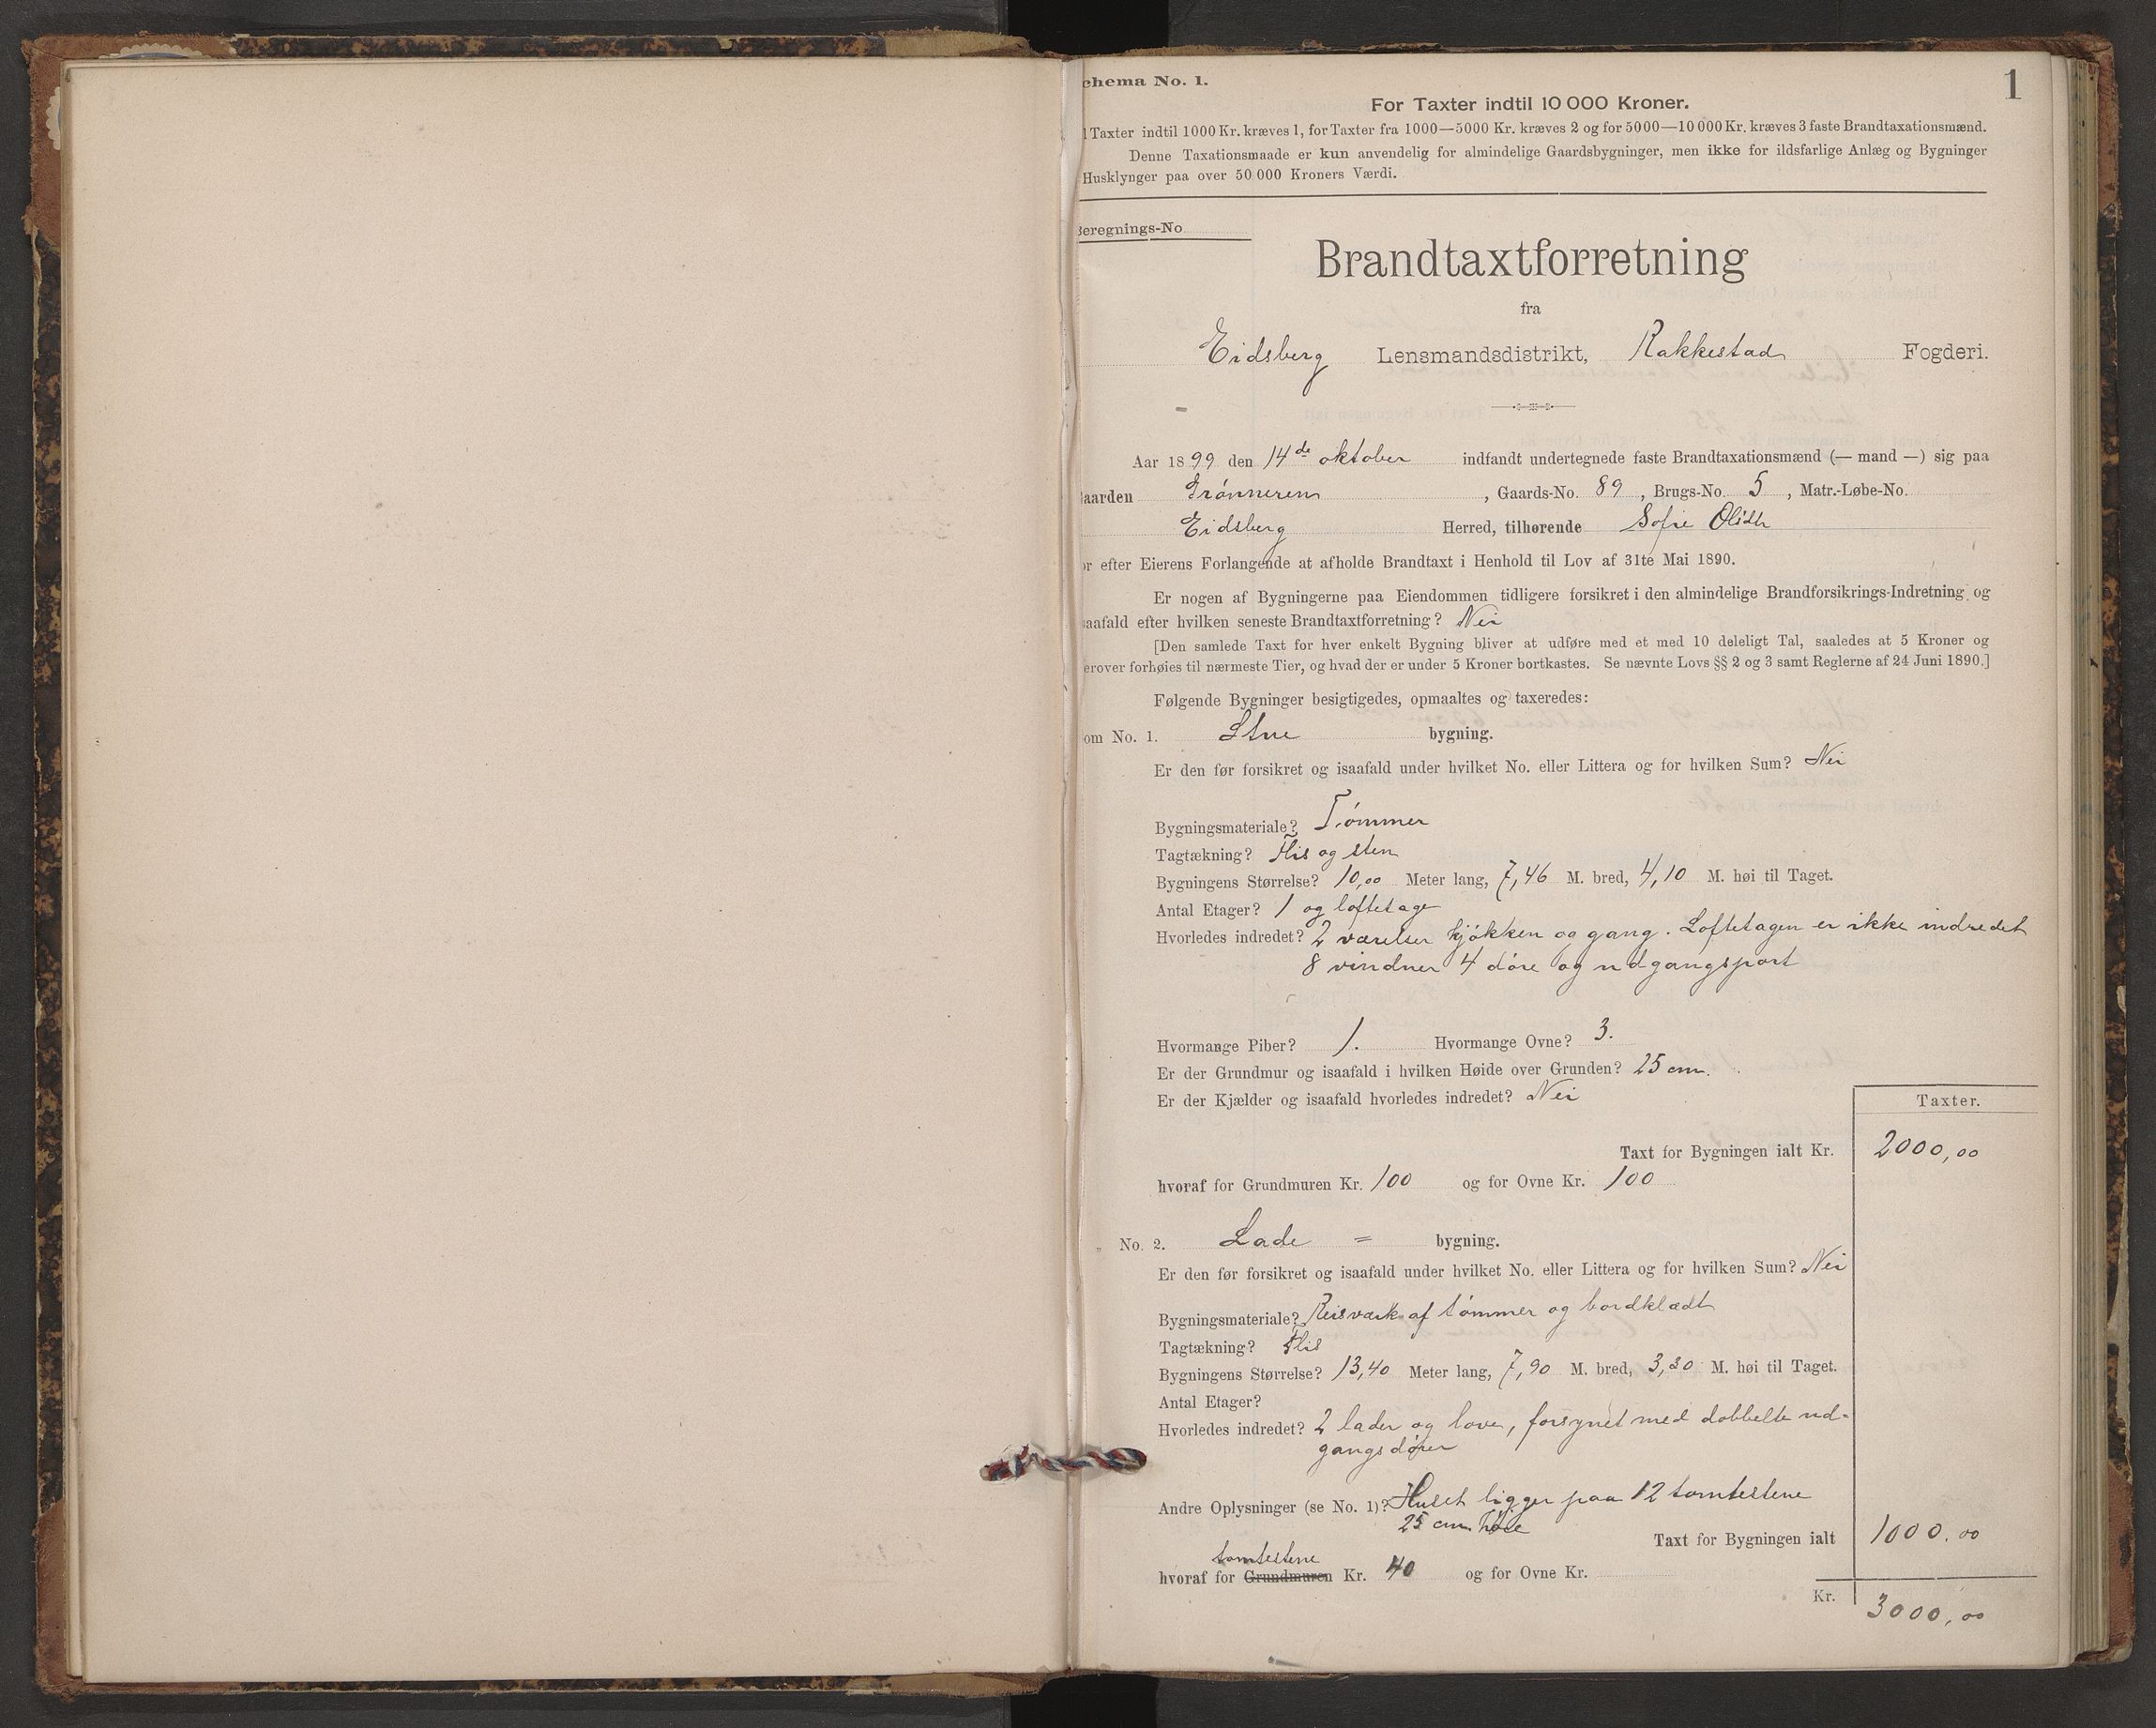 1
chema No. 1.
For Taxter indtil 10 000 Kroner.
l Taxter indtil 1000 Kr. kræves 1, for Taxter fra 1000—5000 Kr. kræves 2 og for 5000—10 000 Kr. kræves 3 faste Brandtaxationsmænd.
Denne Taxationsmaade er kun anvendelig for almindelige Gaardsbygninger, men ikke for ildsfarlige Anlæg og Bygninger
Husklynger paa over 50 000 Kroners Værdi.
Beregnings-No
Brandtaxtforretning
fra
Eidsberg Lensmandsdistrikt, Rakkestad Fogderi.
Aar 1899 den 14de oktober indfandt undertegnede faste Brandtaxationsmænd (— mand —) sig paa
aarden Grønneren, Gaards-No. 89, Brugs-No. 5, Matr.-Løbe-No.
Eidsberg Herred, tilhørende Sofie
or efter Eierens Forlangende at afholde Brandtaxt i Henhold til Lov af 31te Mai 1890.
Er nogen af Bygningerne paa Eiendommen tidligere forsikret i den almindelige Brandforsikrings-Indretning og
saafald efter hvilken seneste Brandtaxtforretning? Nei
[Den samlede Taxt for hver enkelt Bygning bliver at udføre med et med 10 deleligt Tal, saaledes at 5 Kroner og
erover forhøies til nærmeste Tier, og hvad der er under 5 Kroner bortkastes. Se nævnte Lovs §§ 2 og 3 samt Reglerne af 24 Juni 1890.]
Følgende Bygninger besigtigedes, opmaaltes og taxeredes:
om No. 1. Stue bygning.
Er den før forsikret og isaafald under hvilket No. eller Littera og for hvilken Sum? Nei
Bygningsmateriale? Tømmer
Tagtækning? Flis og sten
Bygningens Størrelse? 10,00 Meter lang, 7,46 M. bred, 4,10 M. høi til Taget.
Antal Etager? 1 og loftetage
Hvorledes indredet? 2 værelser kjøkken og gang. Loftetagen er ikke indredet
8 vinduer 4 døre og udgangsport
Hvormange Piber? 1. Hvormange Ovne? 3.
Er der Grundmur og isaafald i hvilken Høide over Grunden? 25 cm.
Er der Kjælder og isaafald hvorledes indredet? Nei
Taxter.
Taxt for Bygningen ialt Kr. 2000,00
hvoraf for Grundmuren Kr. 100 og for Ovne Kr. 100
„ No. 2. Lade = bygning.
Er den før forsikret og isaafald under hvilket No. eller Littera og for hvilken Sum? Nei
Bygningsmateriale? Reisværk af tømmer og bordklædt
Tagtækning? Flis
Bygningens Størrelse? 13,40 Meter lang, 7,90 M. bred, 3,80 M. høi til Taget.
Antal Etager?
Hvorledes indredet? 2 lader og love, forsynet med dobbelte ud-
gangsdører
Andre Oplysninger (se No. 1)? Huset ligger paa 12 tomtestene
25 cm. høie
Taxt for Bygningen ialt 1000.00
tomtestene
hvoraf for Grundmuren Kr. 40 og for Ovne Kr.
Kr. 3000,00